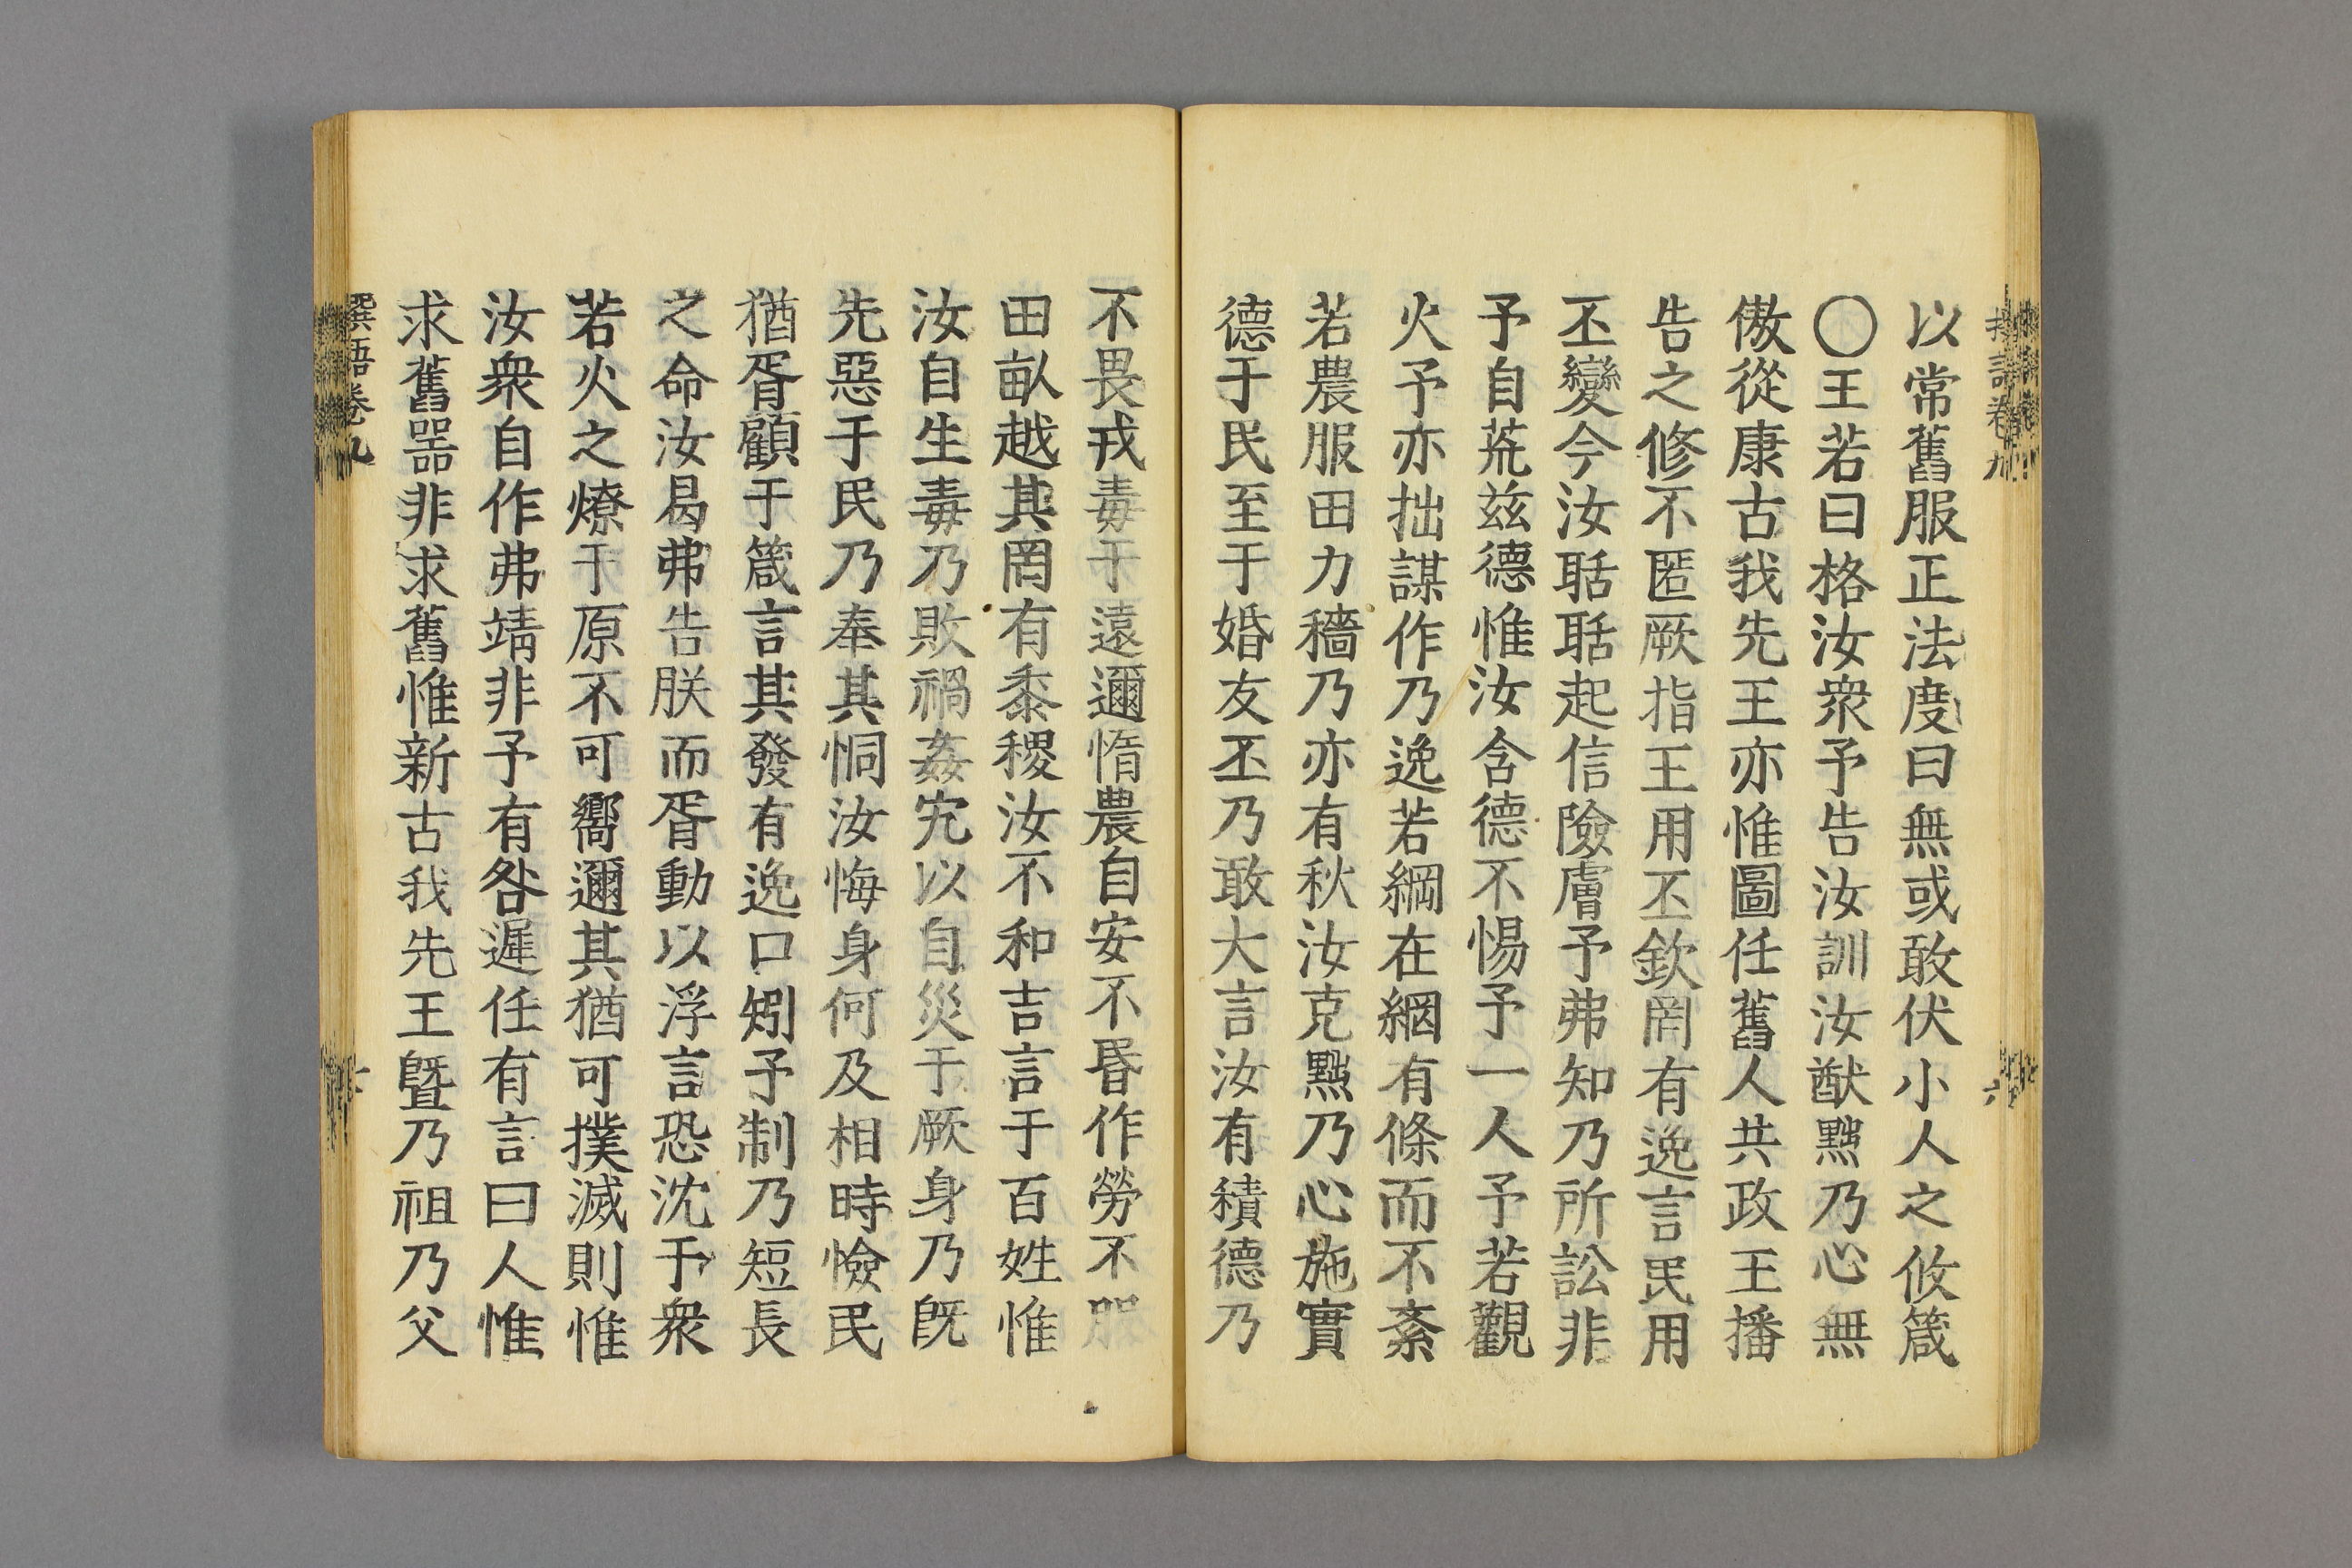 以常舊服正法度曰無或敢伏小人之攸箴
〇王若曰格汝衆予告汝訓汝猷黜乃心無
傲從康古我先王亦惟圖任舊人共政王播
告之修不匿厥指王用丕欽罔有逸言民用
丕變今汝聒聒起信險膚予弗知乃所訟非
予自荒茲德惟汝含德不惕予一人予若觀
火予亦拙謀作乃逸若網在綱有條而不紊
若農服田力穡乃亦有秋汝克黜乃心施實
德于民至于婚友丕乃敢大言汝有積德乃
不畏戎毒于遠邇惰農自安不昬作勞不服
田畝越其罔有黍稷汝不和吉言于百姓惟
汝自生毒乃敗禍姦宄以自災于厥身乃旣
先惡于民乃奉其恫汝悔身何及相時憸民
猶胥顧于箴言其發有逸口矧予制乃短長
之命汝曷弗告朕而胥動以浮言恐沈于衆
若火之燎于原不可嚮邇其猶可撲滅則惟
汝衆自作弗靖非予有咎遲任有言曰人惟
求舊器非求舊惟新古我先王曁乃祖乃父
卷九